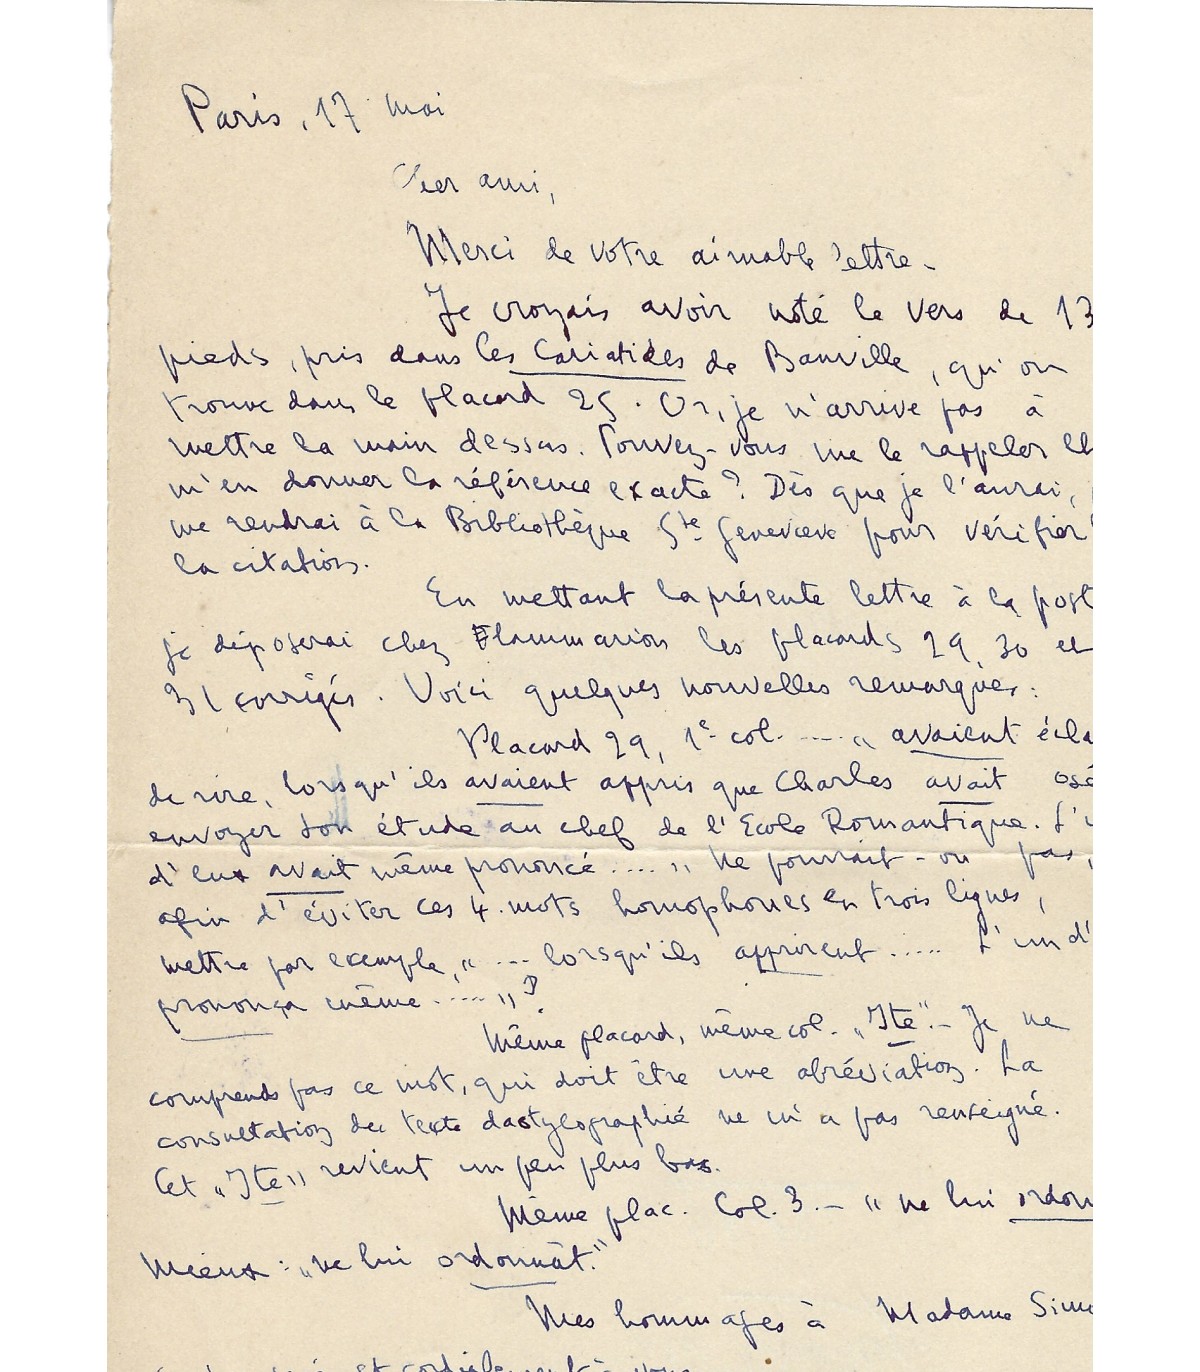 Paris, 17 mai
Cher ami,
Merci de votre aimable lettre.
Je croyais avoir noté le vers de 13
pieds, pris dans les Cariatides de Banville, qu'on
trouve dans le placard 25. Or, je n'arrive pas à
mettre la main dessus. Pouvez-vous me le rappeler et
m'en donner la référence exacte ? Dès que je l'aurai,
me rendrai à la Bibliothèque Ste Geneviève pour vérifier
la citation.
En mettant la présente lettre à la post
je déposerai chez Flammarion les placards 29, 30 et
31 corrigés. Voici quelques nouvelles remarques :
Placard 29, 1e col. .... „ avaient écla
de rire, lorsqu'ils avaient appris que Charles avait osé
envoyer son étude au chef de l'Ecole Romantique. L'u
d'eux avait même prononcé ..... „ Ne pourrait-on pas,
afin d'éviter ces 4 mots homophones en trois lignes,
mettre par exemple, „ ... lorsqu'ils apprirent ..... L'un d'
prononça même ..... „ ?
Même placard, même col. „Ite". – Je ne
comprends pas ce mot, qui doit être une abréviation. La
consultation du texte dactylographié ne m'a pas renseigné.
Cet „Ite„ revient un peu plus bas.
Même plac. Col. 3. – „ ne lui ordon
Mieux : „ne lui ordonnât."
Mes hommages à Madame Sim
et cordialement à vous